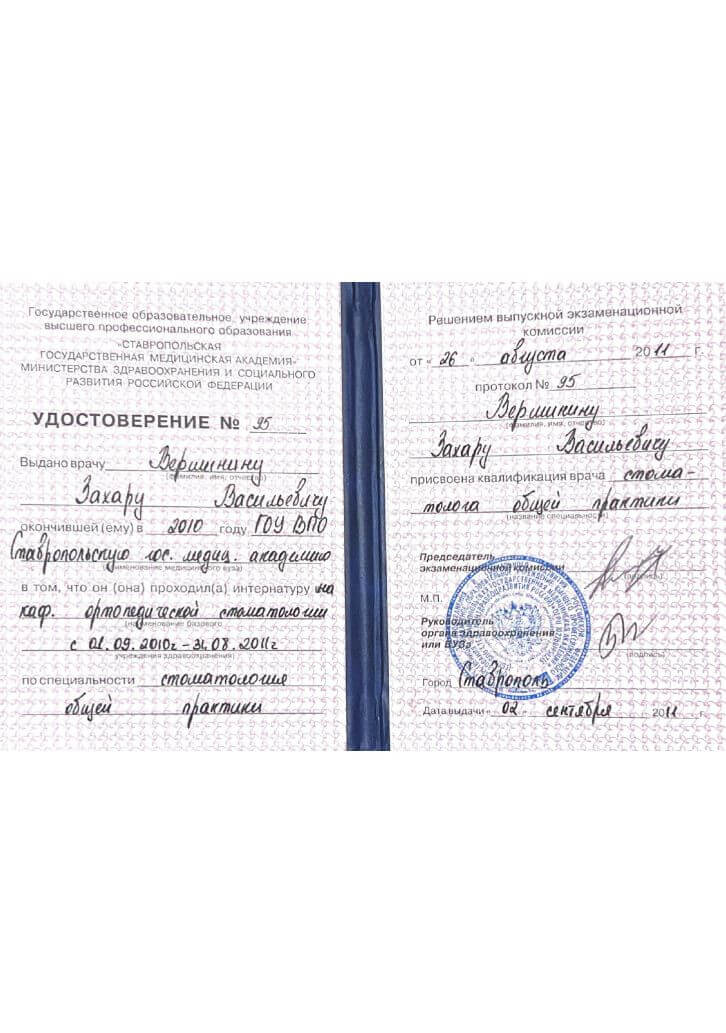 Государственное образовательное учреждение
высшего профессионального образования
«СТАВРОПОЛЬСКАЯ
ГОСУДАРСТВЕННАЯ МЕДИЦИНСКАЯ АКАДЕМИЯ»
МИНИСТЕРСТВА ЗДРАВООХРАНЕНИЯ И СОЦИАЛЬНОГО
РАЗВИТИЯ РОССИЙСКОЙ ФЕДЕРАЦИИ
УДОСТОВЕРЕНИЕ № 95
Выдано врачу Вершинину
(фамилия, имя, отчество)
Захару Васильевичу
окончившей (ему) в 2010 году ГОУ ВПО
Ставропольскую гос. медиц. академию
(наименование медицинского вуза)
в том, что он (она) проходил(а) интернатуру на
каф. ортопедической стоматологии
(наименование базового
с 01.09.2010г – 31.08.2011г
учреждения здравоохранения)
по специальности стоматология
общей практики
Решением выпускной экзаменационной
комиссии
от « 26 » августа 2011 г.
протокол № 95
Вершинину
(фамилия, имя, отчество)
Захару Васильевичу
присвоена квалификация врача стома-
толога общей практики
(название специальности)
Председатель
экзаменационной комиссии
(подпись)
М.П.
Руководитель
органа здравоохранения
или ВУЗа
(подпись)
Город Ставрополь
Дата выдачи « 02 » сентября 2011 г.